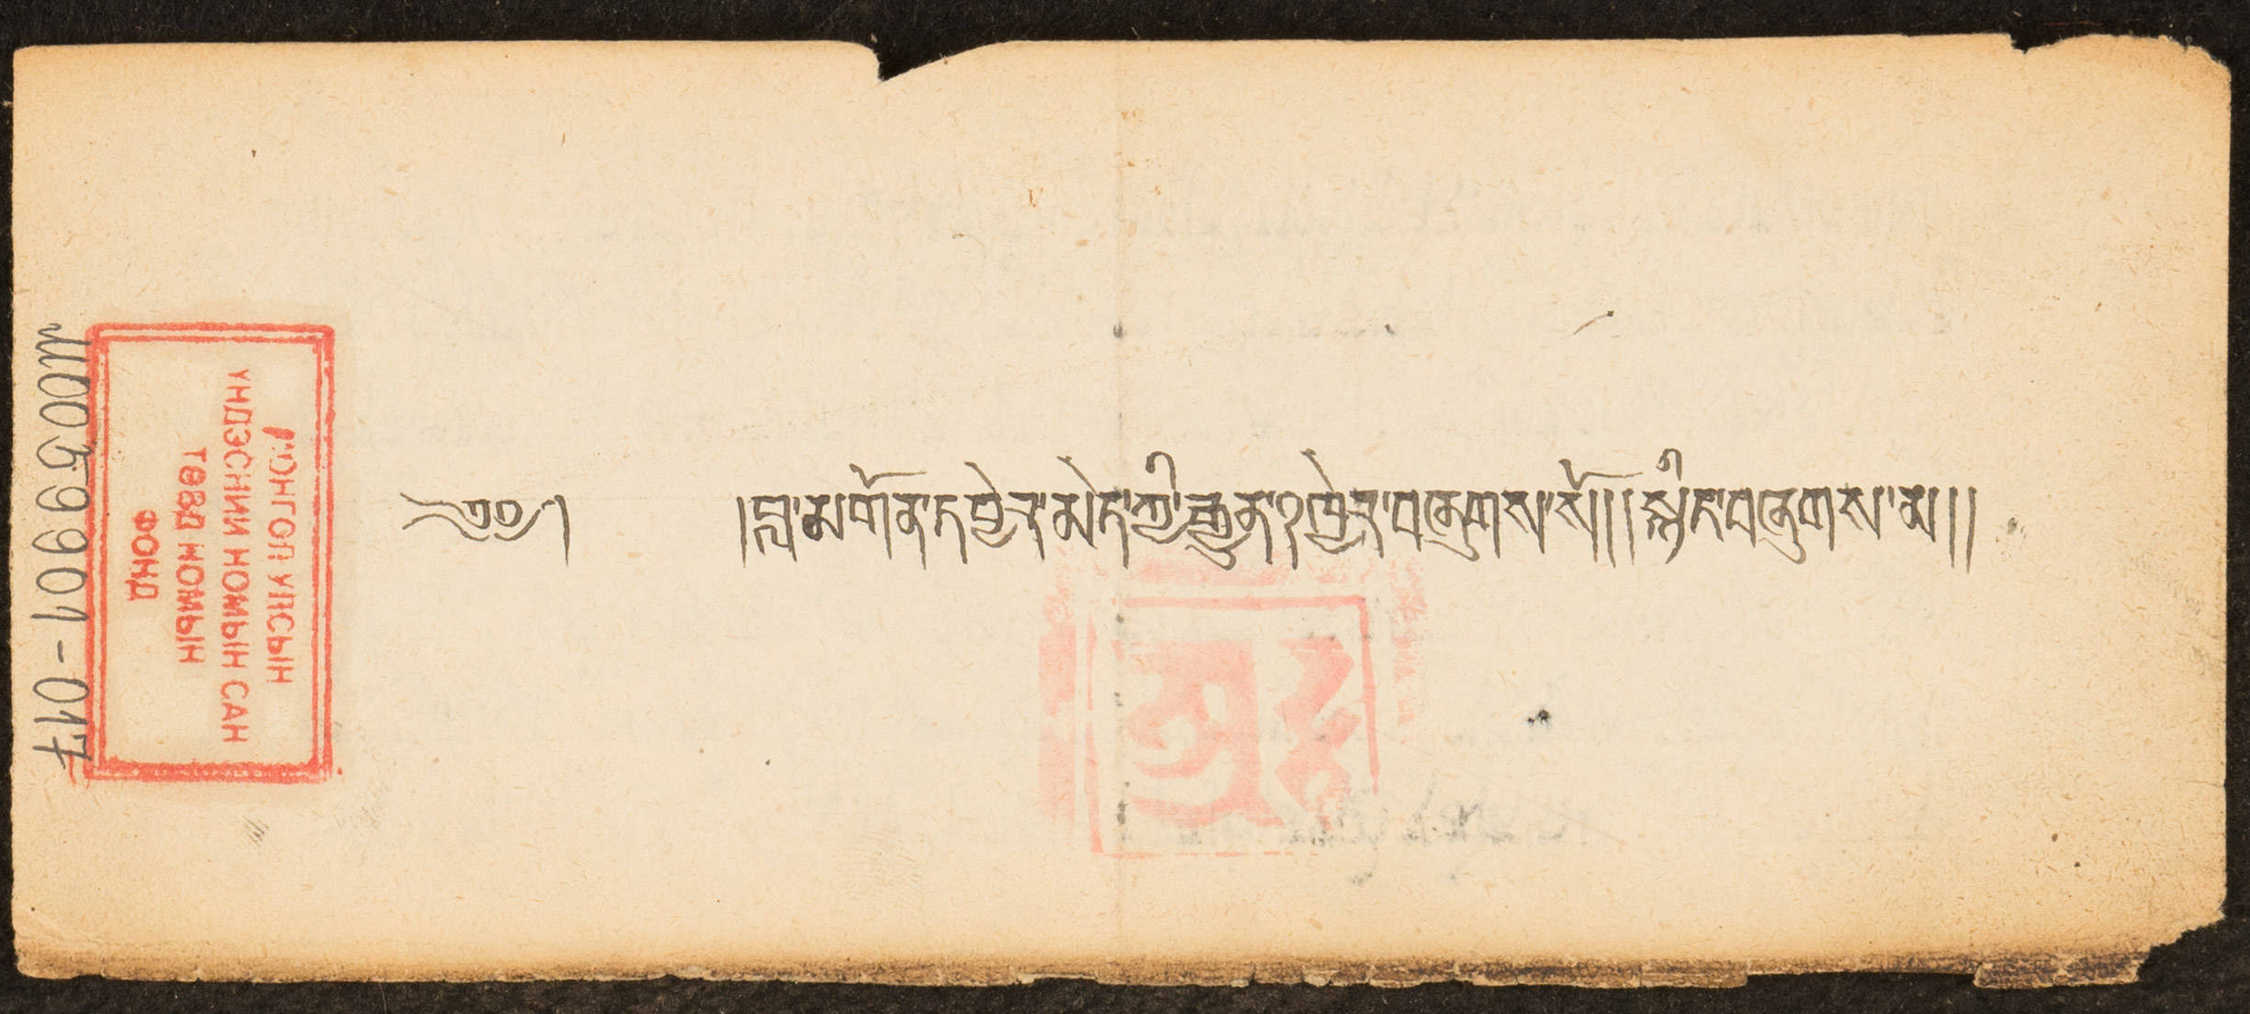 ༄༅། །བླ་མགོན་དབྱེར་མེད་ཀྱི་རྒྱུན་ཁྱེར་བཞུགས་སོ།། །སྙིང་བཞུགས་མ།།
МОНГОЛ УЛСЫН
ҮНДЭСНИЙ НОМЫН САН
ТӨВД НОМЫН
ФОНД
M0059901-017